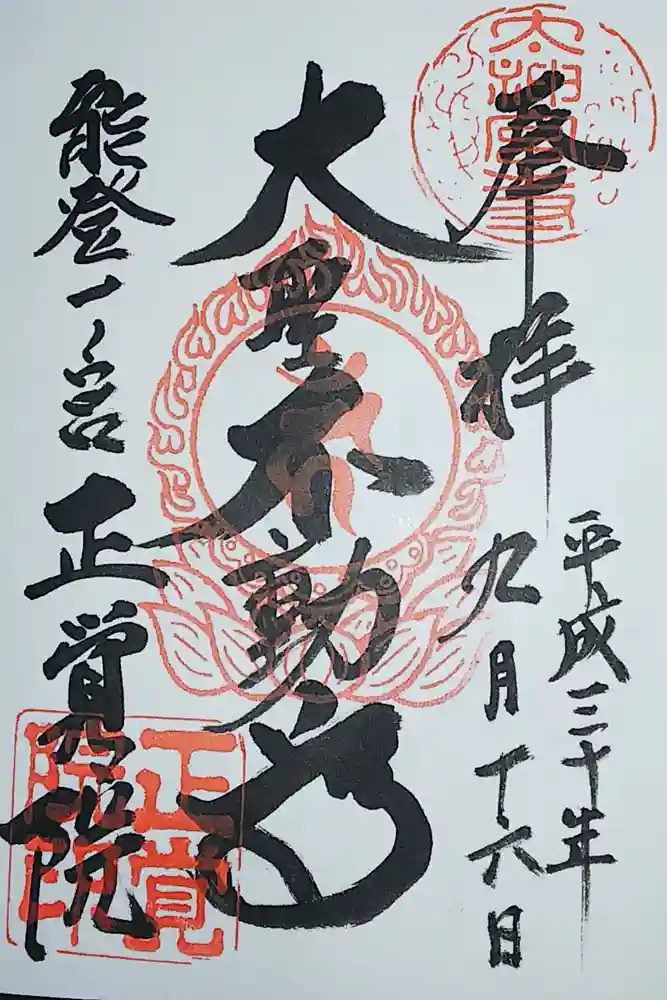 奉拝
平成三十年
九月十六日
大聖不動
能登一ノ宮 正覚院
正覚
院印